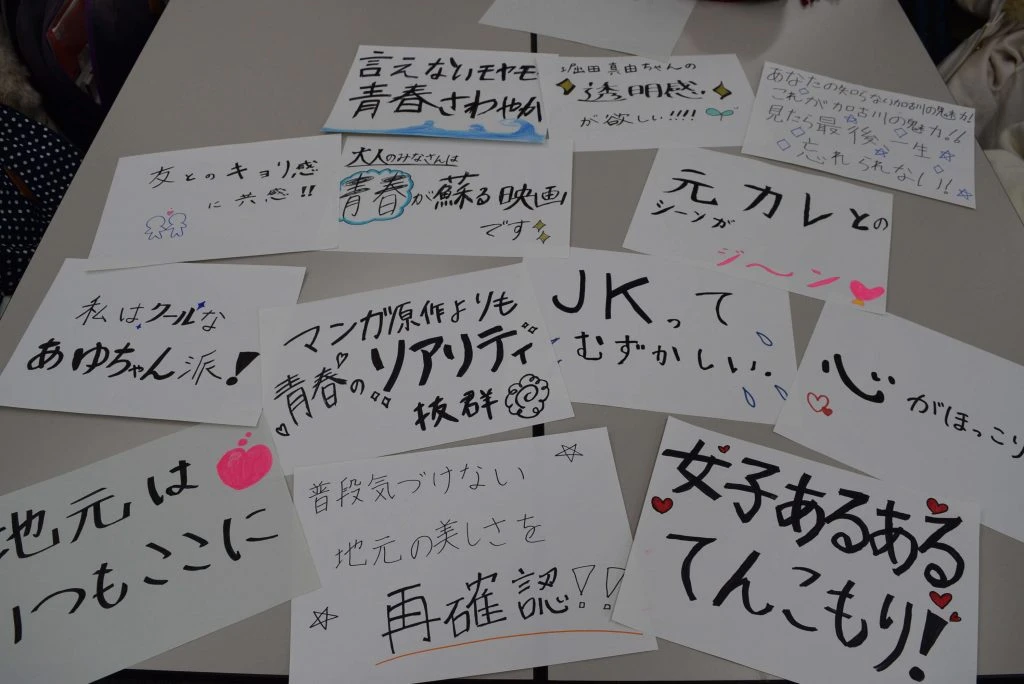 言えないモヤモヤ
青春さわやか
堀田真由ちゃんの
透明感
が欲しい!!!!
あなたの知らない加古川の魅力!
これが加古川の魅力!!
見たら最後、一生
忘れられない!!
友とのキョリ感
に共感!!
大人のみなさんは
青春が蘇る映画
です
元カレとの
シーンが
ジ〜ン
私はクールな
あゆちゃん派!
マンガ原作よりも
青春のリアリティ
抜群
JKって
むずかしい.
心がほっこり
地元は
いつもここに
普段気づけない
地元の美しさを
再確認!!
女子あるある
てんこもり!